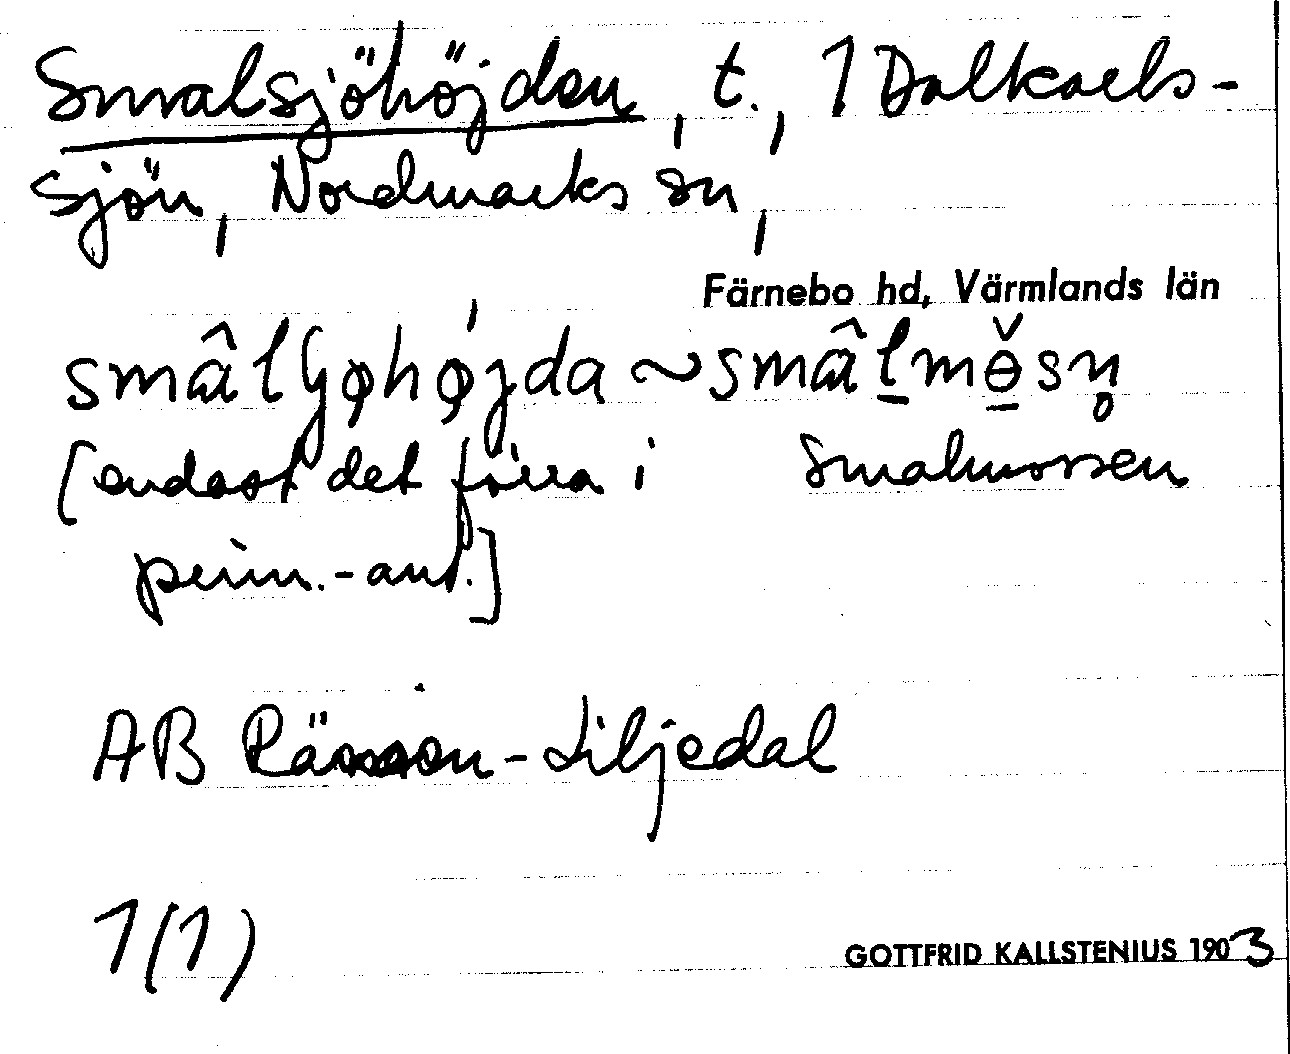 Smalsjöhöjden, t., 1 Dalkarls-
sjön, Nordmarks sn,
Färnebo hd, Värmlands län
smâlʃøhø̀jda ~ smâlmə̌sn̥
[endast det förra i Smalmossen
prim.-ant.]
AB Rämmen-Liljedal
1(1)
GOTTFRID KALLSTENIUS 1903